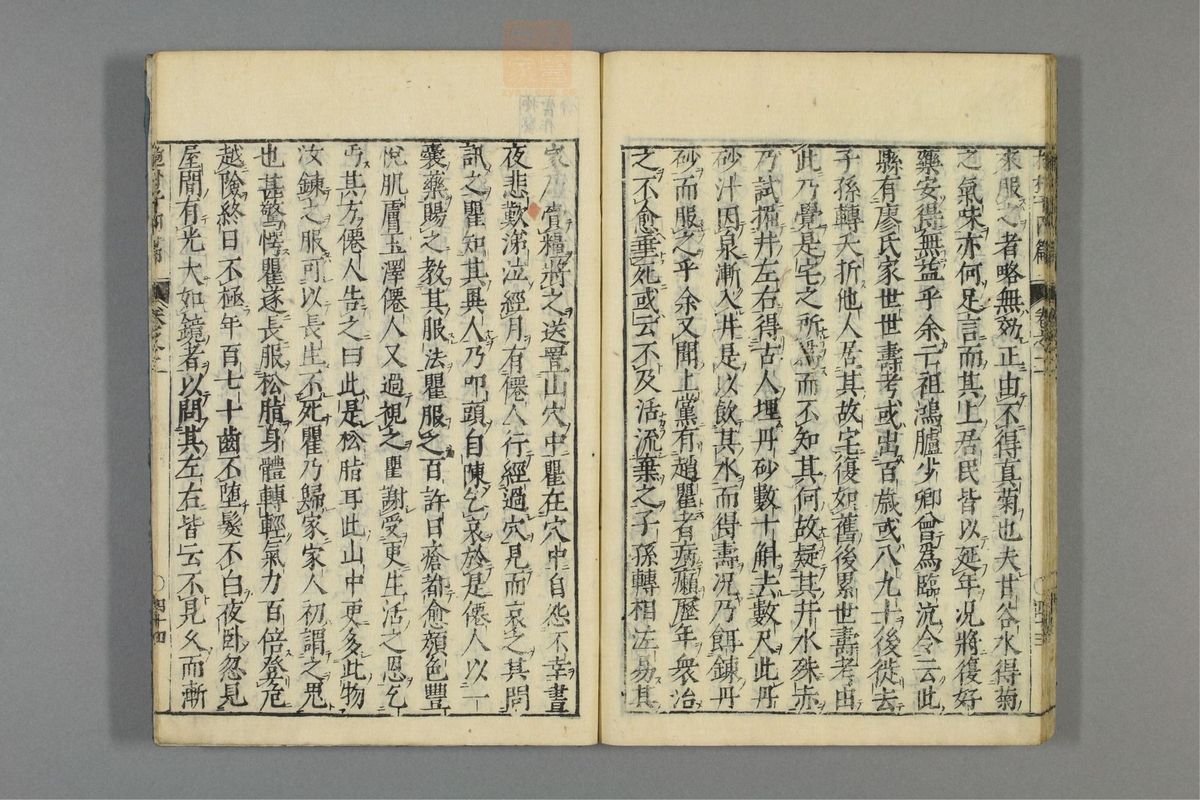 來服之者略無效正由不得真菊也夫甘谷水得菊
之氣味亦何足言而其上居民皆以延年況將復好
藥安得無益乎余亡祖鴻臚少卿曾爲臨沅令云此
縣有廖氏家世世壽考或出百歲或八九十後徙去
子孫轉夭折他人居其故宅復如舊後累世壽考由
此乃覺是宅之所爲而不知其何故疑其井水殊赤
乃試掘井左右得古人埋丹砂數十斛去數尺此丹
砂汁因泉漸入井是以飲其水而得壽況乃餌鍊丹
砂而服之乎余又聞上黨有趙瞿者病癩歷年衆治
之不愈垂死或云不及活流棄之子孫轉相注易其
家乃賫糧將之送置山穴中瞿在穴中自怨不幸晝
夜悲歎涕泣經月有僊人行經過穴見而哀之具問
訊之瞿知其異人乃叩頭自陳乞哀於是僊人以一
囊藥賜之教其服法瞿服之百許日瘡都愈顏色豐
悅肌膚玉澤僊人又過視之瞿謝受更生活之恩乞
丐其方僊人告之曰此是松脂耳此山中更多此物
汝鍊之服可以長生不死瞿乃歸家家人初謂之鬼
也甚驚愕瞿遂長服松脂身體轉輕氣力百倍登危
越險終日不極年百七十齒不墮髮不白夜卧忽見
屋間有光大如鏡者以問其左右皆云不見久而漸
四十四